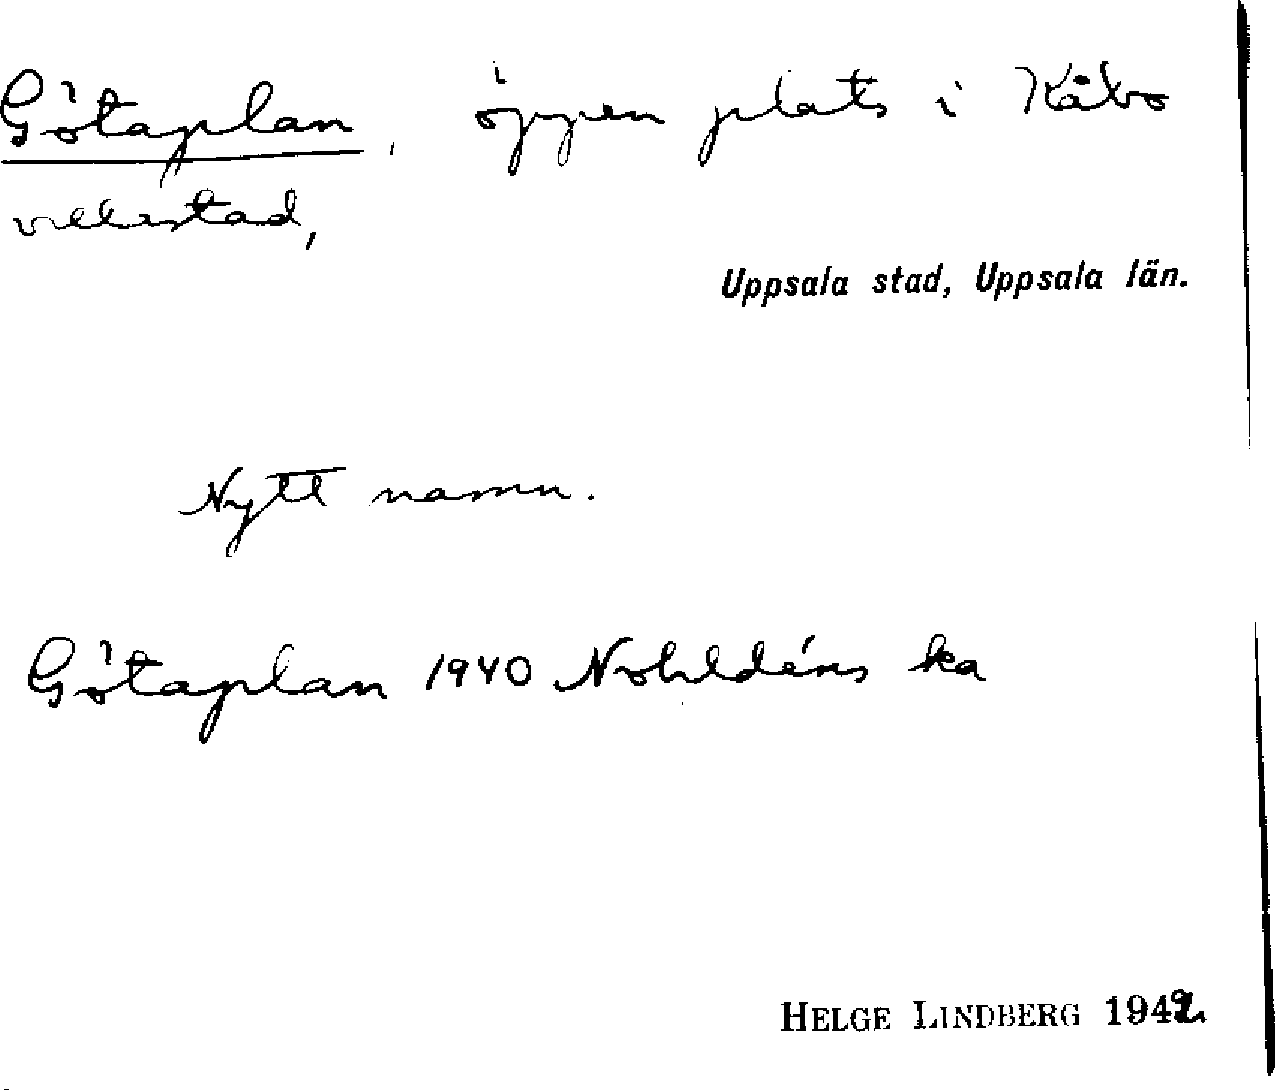 Götaplan, öppen plats i Kåbo
villastad,
Uppsala stad, Uppsala län.
Nytt namn.
Götaplan 1940 Nohldéns ka
HELGE LINDBERG 1942